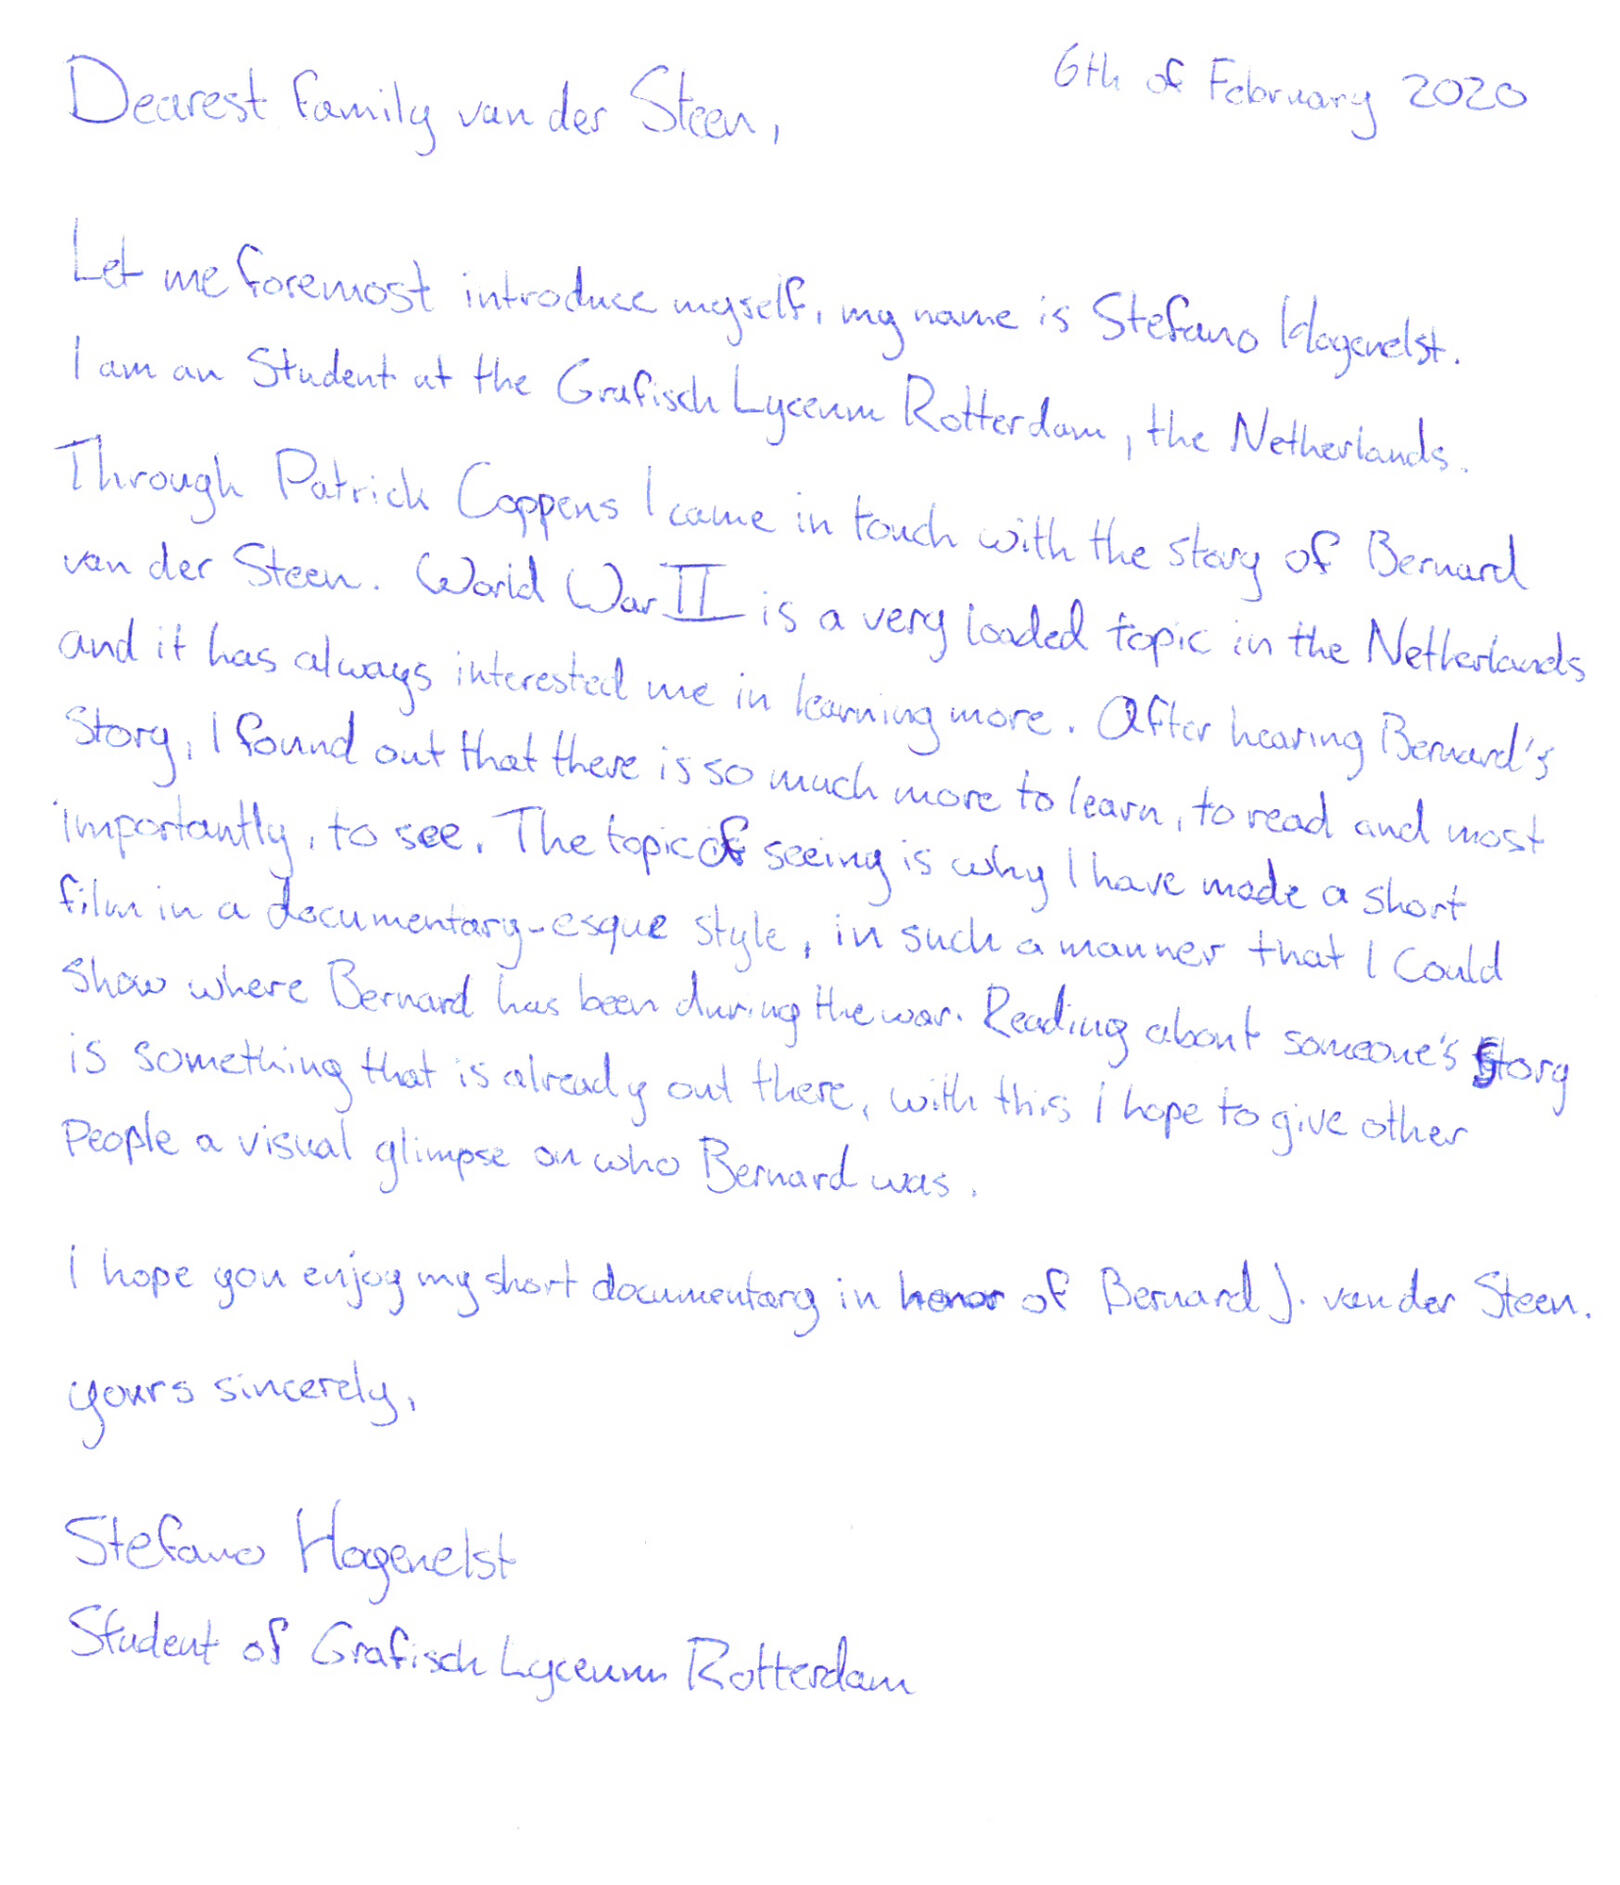 6th of February 2020
Dearest family van der Steen,
Let me foremost introduce myself, my name is Stefano Hagenelst.
I am an Student at the Grafisch Lyceum Rotterdam, the Netherlands.
Through Patrick Coppens I came in touch with the story of Bernard
van der Steen. World War II is a very loaded topic in the Netherlands
and it has always interested me in learning more. After hearing Bernard's
Story, I found out that there is so much more to learn, to read and most
importantly, to see. The topic of seeing is why I have made a short
film in a documentary-esque style, in such a manner that I Could
Show where Bernard has been during the war. Reading about someone's story
is something that is already out there, with this I hope to give other
People a visual glimpse on who Bernard was.
I hope you enjoy my short documentary in honor of Bernard J. van der Steen.
yours sincerely,
Stefano Hagenelst
Student of Grafisch Lyceum Rotterdam